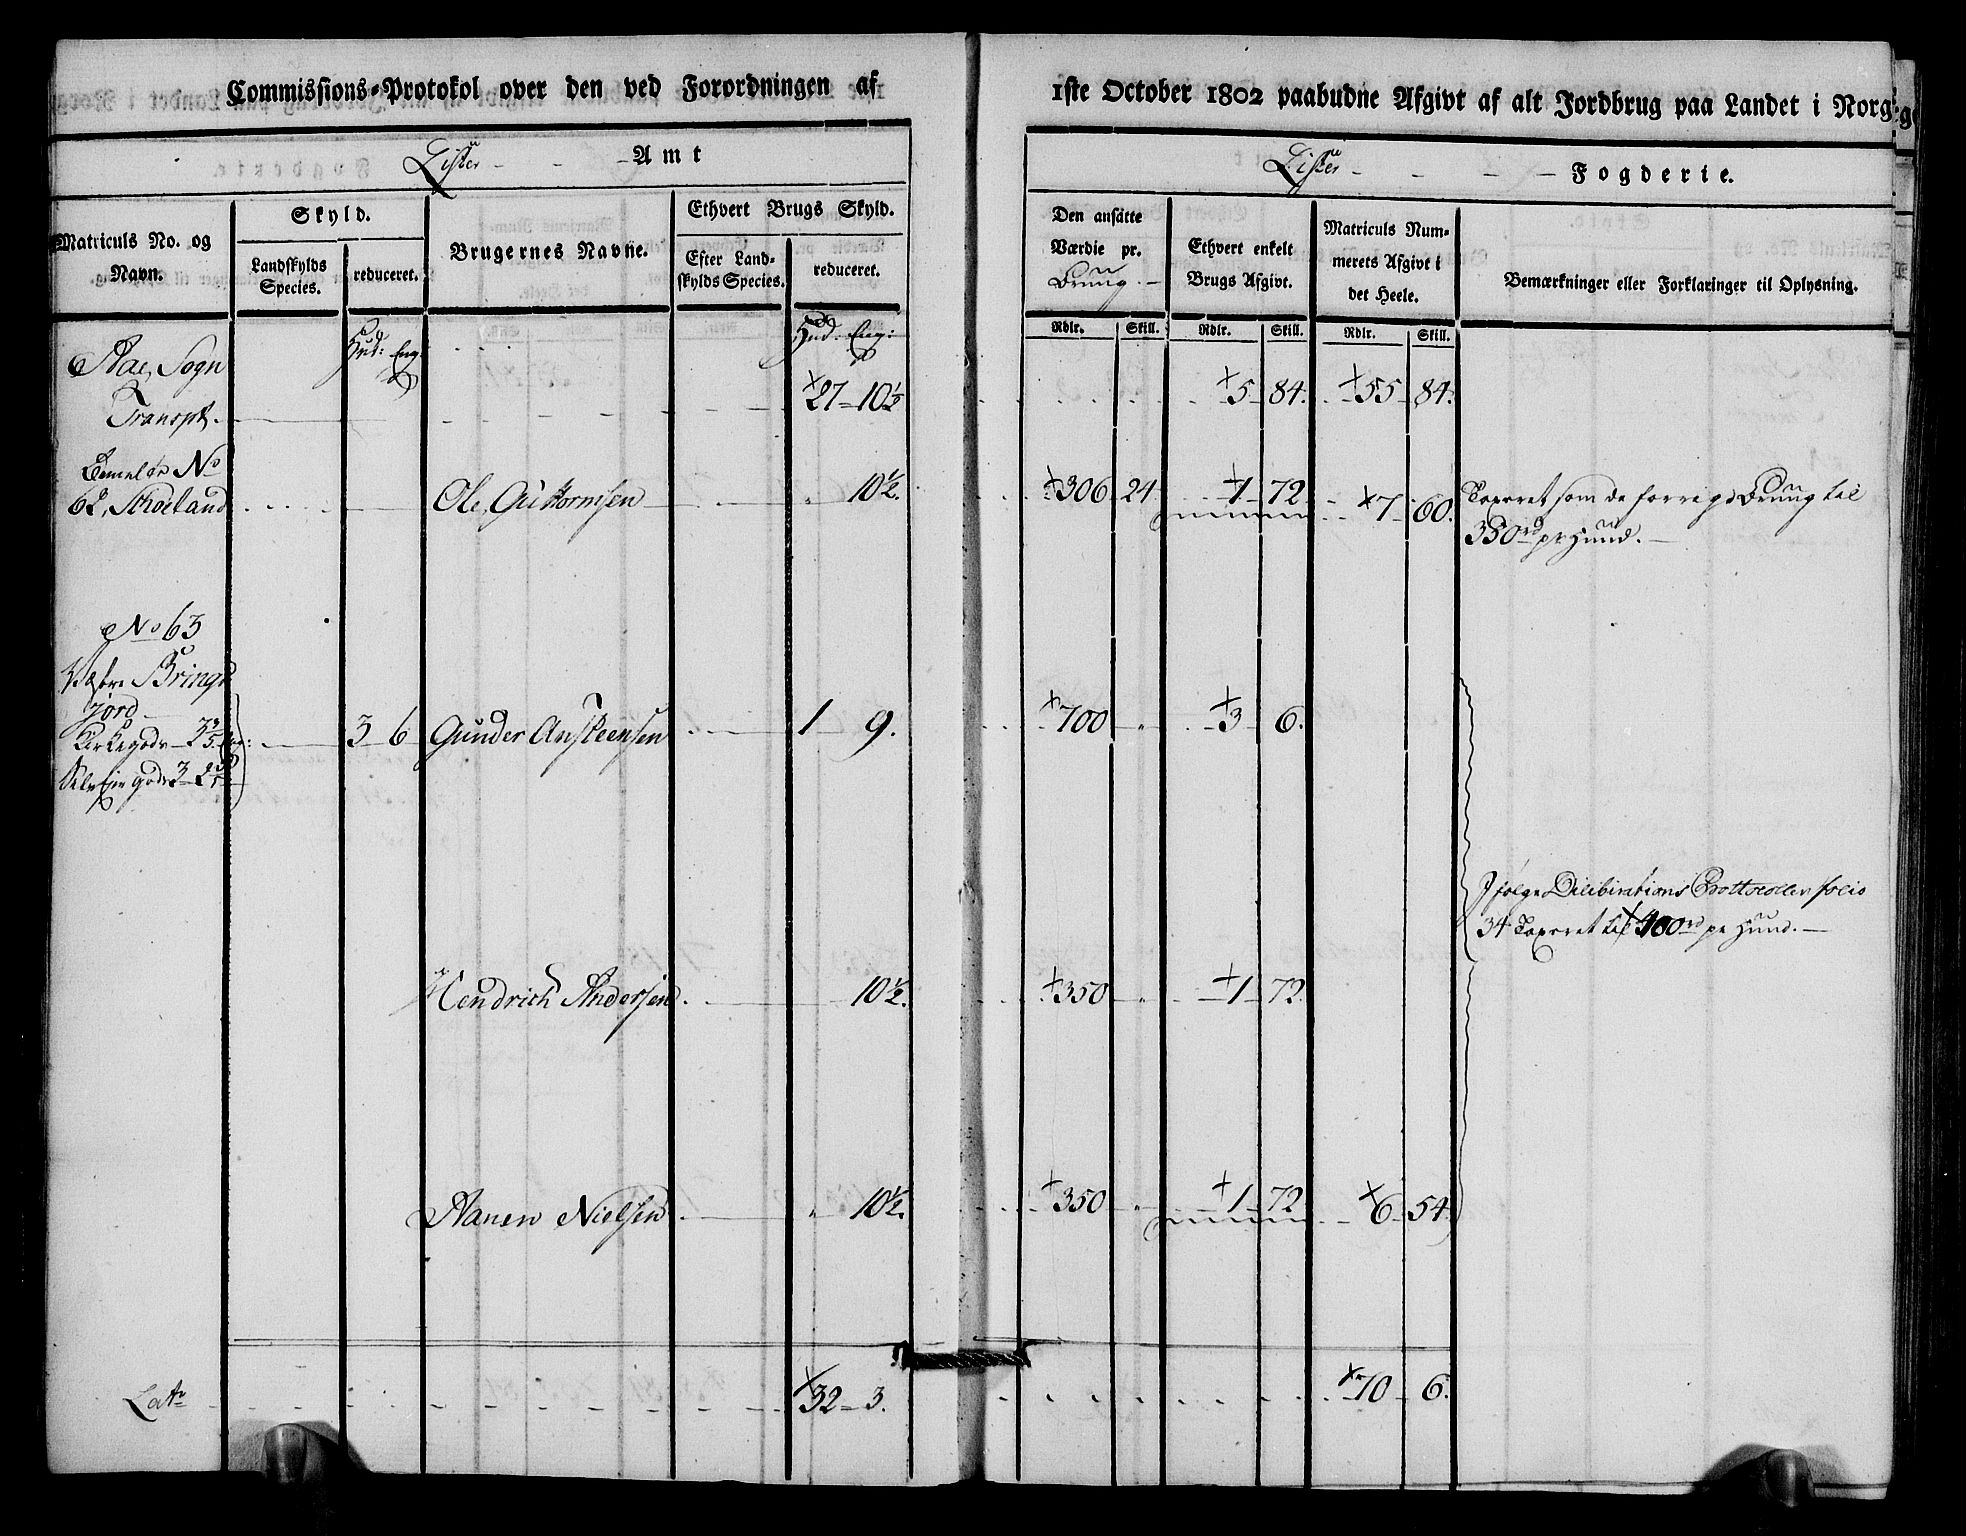 Commissions-Protokol over den ved Forordningen af
1ste October 1802 paabudne Afgivt af alt Jordbrug paa Landet i Norg
Lister Amt
Lister Fogderie.
Matriculs No. og Navn.
Skyld.
Landskylds Species.
reduceret.
Brugernes Navne.
Ethvert Brugs Skyld.
Efter Landskylds Species.
reduceret.
Den ansatte Værdie pr. Brug.
Ethvert enkelt Brugs Afgivt.
Matriculs Nummerets Afgivt i det Heele.
Bemærkninger eller Forklaringer til Oplysning.
Rdlr. Skill. Rdlr. Skill. Rdlr. Skill.
Hud: Eng: Hud: Eng:
Aae, Sogn
Transpt. 27 - 10½ 5 84. 55 84.
No
62, Skoeland Ole, Guttormsen 10½. 306 24 1 72. 7 60. Taxeret som de forrige Brug til
350 rd pr Hud.
No 63
Væstre Brings
jord
Kirkegods - 3 3/5 Eng: 3 6 Gunder Anskeensen 1 9. 700 3 6.
Selv Eiergods 3 - 2 2/5
Ifølge Deliberations Prottocollen folio
34 Taxeret til 400 rd pr Hud.
Hendrich Andersen 10½. 350 1 72.
Aanen Nielsen 10½. 350 1 72 6 54.
Lat. 32 - 3. 70 6.